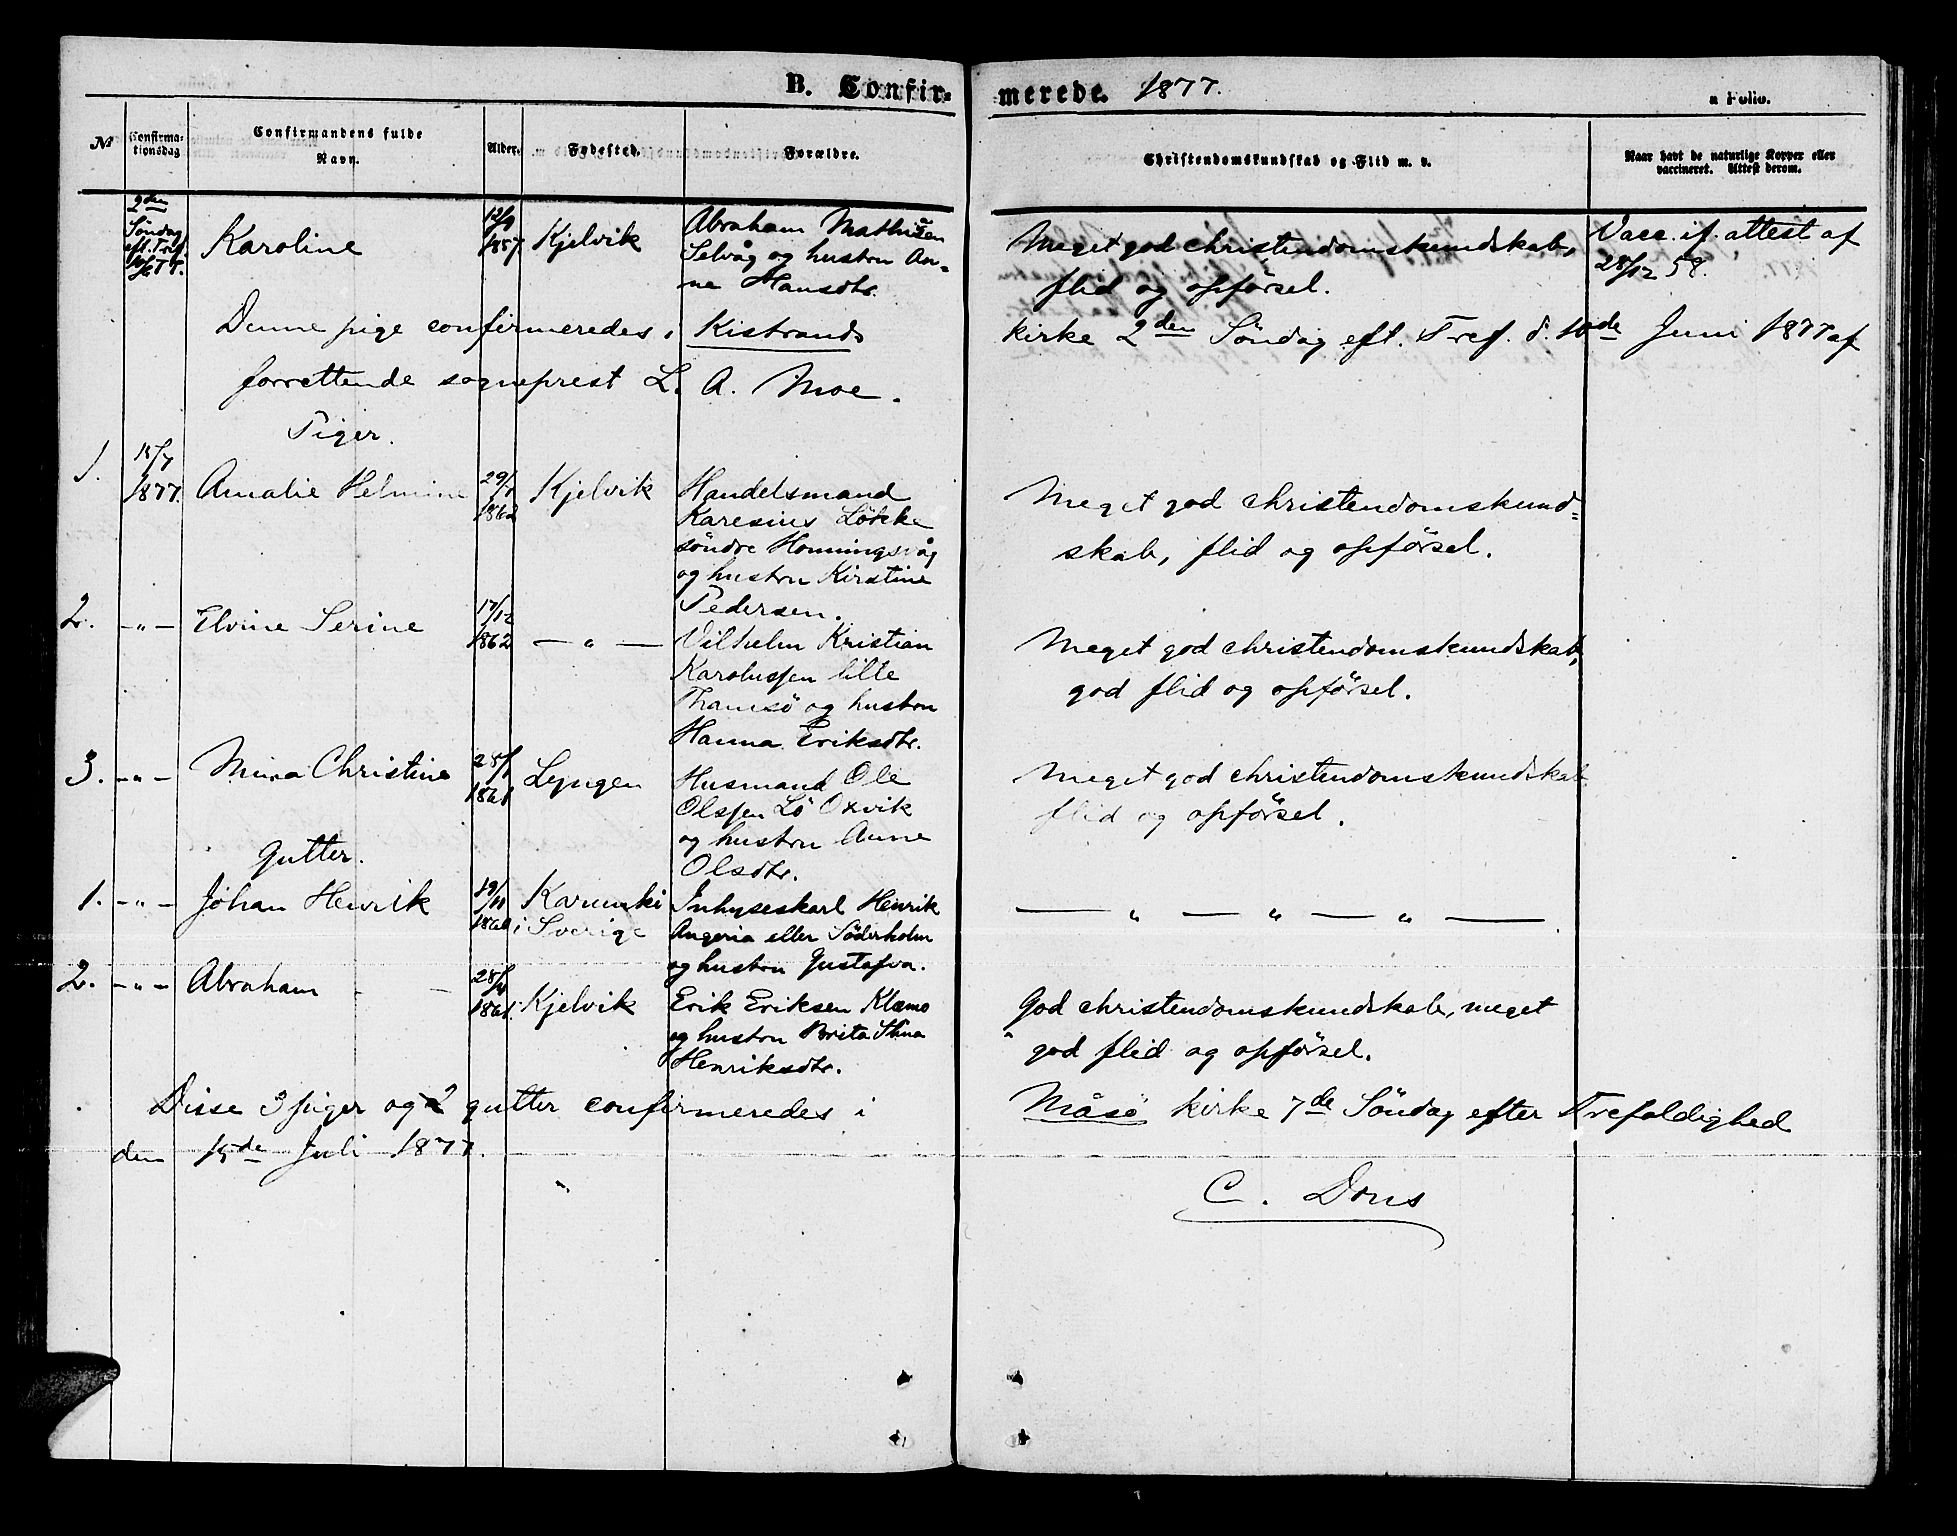 B. Confirmerede. 1877.
a Folio.
No
Confirmationsdag
Confirmandens fulde Navn.
Alder.
Fødested.
Forældre.
Christendomskundskab og Flid m. v.
Naar havt de naturlige Kopper eller vaccineret. Attest derom.
2den Söndag eft. Tref. 10/6 77.
Karoline
12/9 1857
Kjelvik
Abraham Mathisen
Selvåg og hustru An-
na Hansdtr.
Meget god christendomskundskab,
flid og opförsel.
Vacc. if. attest af
28/12 58.
Denne pige confirmeredes i Kistrands kirke 2den Söndag eft. Tref. d. 10de Juni 1877 af
forrettende sogneprest L. A. Moe.
Piger.
1.
15/7 1877.
Amalie Helmine
29/1 1862
Kjelvik
Handelsmand
Karesius Lökke
söndre Honningsvåg
og hustru Kirstine
Pedersen.
Meget god christendomskund-
skab, flid og opförsel.
2.
-"-
Elvine Serine
17/12 1862
-"-
Vilhelm Kristian
Karolussen lille
Thamsö og hustru
Hanna Eriksdtr.
Meget god christendomskundskab,
god flid og opförsel.
3.
-"-
Mina Christine
28/1 1861
Lyngen
Husmand Ole
Olssen Lö Oxvik
og hustru Anne
Olsdtr.
Meget god christendomskundskab
flid og opförsel.
Gutter.
1.
-"-
Johan Henrik
19/11 1860
Karunki
i Sverige
Inhyseskarl Henrik
Angeria eller Söderholm
og hustru Gustafva.
— " — " — " —
2.
-"-
Abraham
1861.
Kjelvik
Erik Eriksen Klæmo
og hustru Brita Stina
Henriksdtr.
God christendomskundskab, meget
god flid og opförsel.
Disse 3 piger og 2 gutter confirmeredes i Måsö kirke 7de Söndag efter Trefoldighed
den 15de Juli 1877.
C. Dons